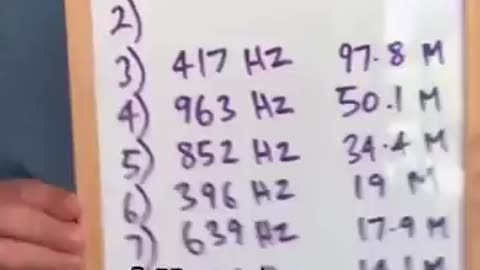 2)
3) 417 HZ 97.8 M
4) 963 HZ 50.1 M
5) 852 HZ 34.4 M
6) 396 HZ 19 M
7) 639 HZ 17.9 M